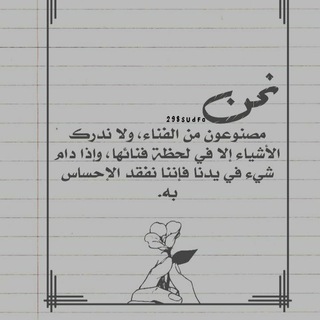 نحن
29$sudfa
مصنوعون من الفناء، ولا ندرك
الأشياء إلا في لحظة فنائها، واذا دام
شيء في يدنا فإننا نفقد الإحساس
به.